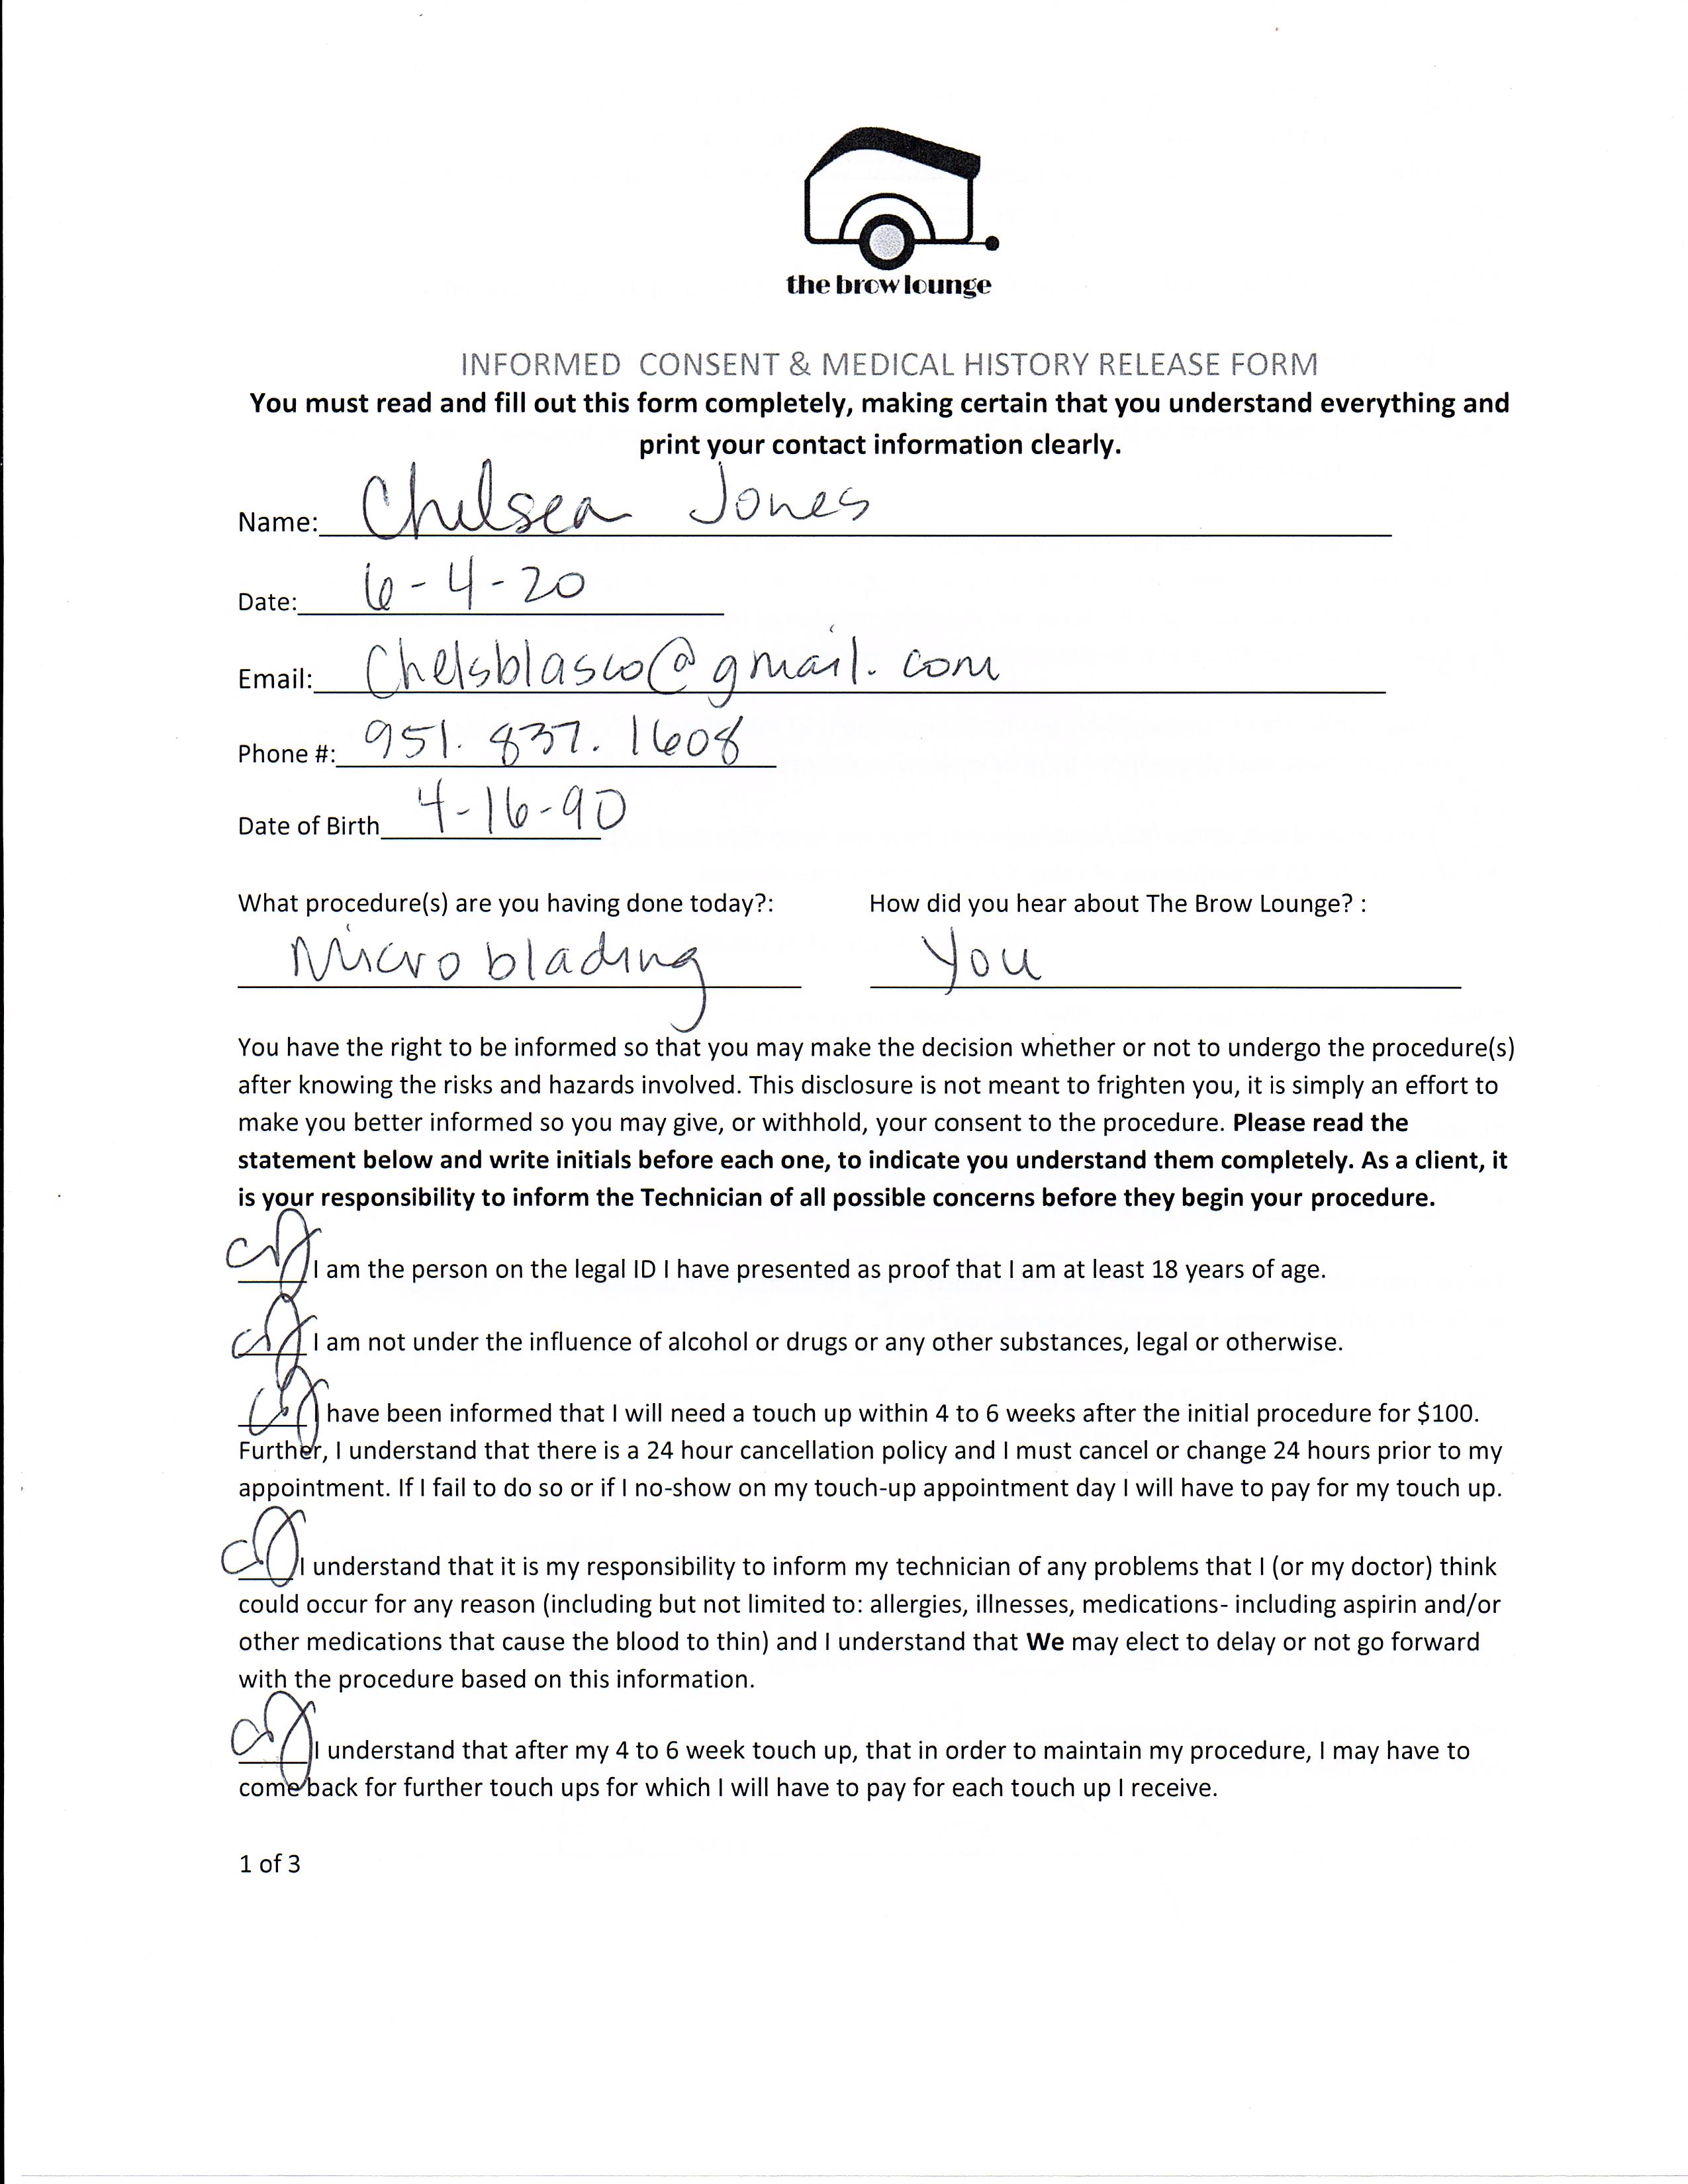 the brow lounge
INFORMED CONSENT & MEDICAL HISTORY RELEASE FORM
You must read and fill out this form completely, making certain that you understand everything and
print your contact information clearly.
Name: Chelsea Jones
Date: 6-4-20
Email: Chelsblasco@gmail.com
Phone #: 951.837.1608
Date of Birth 4-16-90
What procedure(s) are you having done today?: How did you hear about The Brow Lounge? :
Microblading You
You have the right to be informed so that you may make the decision whether or not to undergo the procedure(s)
after knowing the risks and hazards involved. This disclosure is not meant to frighten you, it is simply an effort to
make you better informed so you may give, or withhold, your consent to the procedure. Please read the
statement below and write initials before each one, to indicate you understand them completely. As a client, it
is your responsibility to inform the Technician of all possible concerns before they begin your procedure.
CJ I am the person on the legal ID I have presented as proof that I am at least 18 years of age.
CJ I am not under the influence of alcohol or drugs or any other substances, legal or otherwise.
CJ I have been informed that I will need a touch up within 4 to 6 weeks after the initial procedure for $100.
Further, I understand that there is a 24 hour cancellation policy and I must cancel or change 24 hours prior to my
appointment. If I fail to do so or if I no-show on my touch-up appointment day I will have to pay for my touch up.
CJ I understand that it is my responsibility to inform my technician of any problems that I (or my doctor) think
could occur for any reason (including but not limited to: allergies, illnesses, medications- including aspirin and/or
other medications that cause the blood to thin) and I understand that We may elect to delay or not go forward
with the procedure based on this information.
CJ I understand that after my 4 to 6 week touch up, that in order to maintain my procedure, I may have to
come back for further touch ups for which I will have to pay for each touch up I receive.
1 of 3